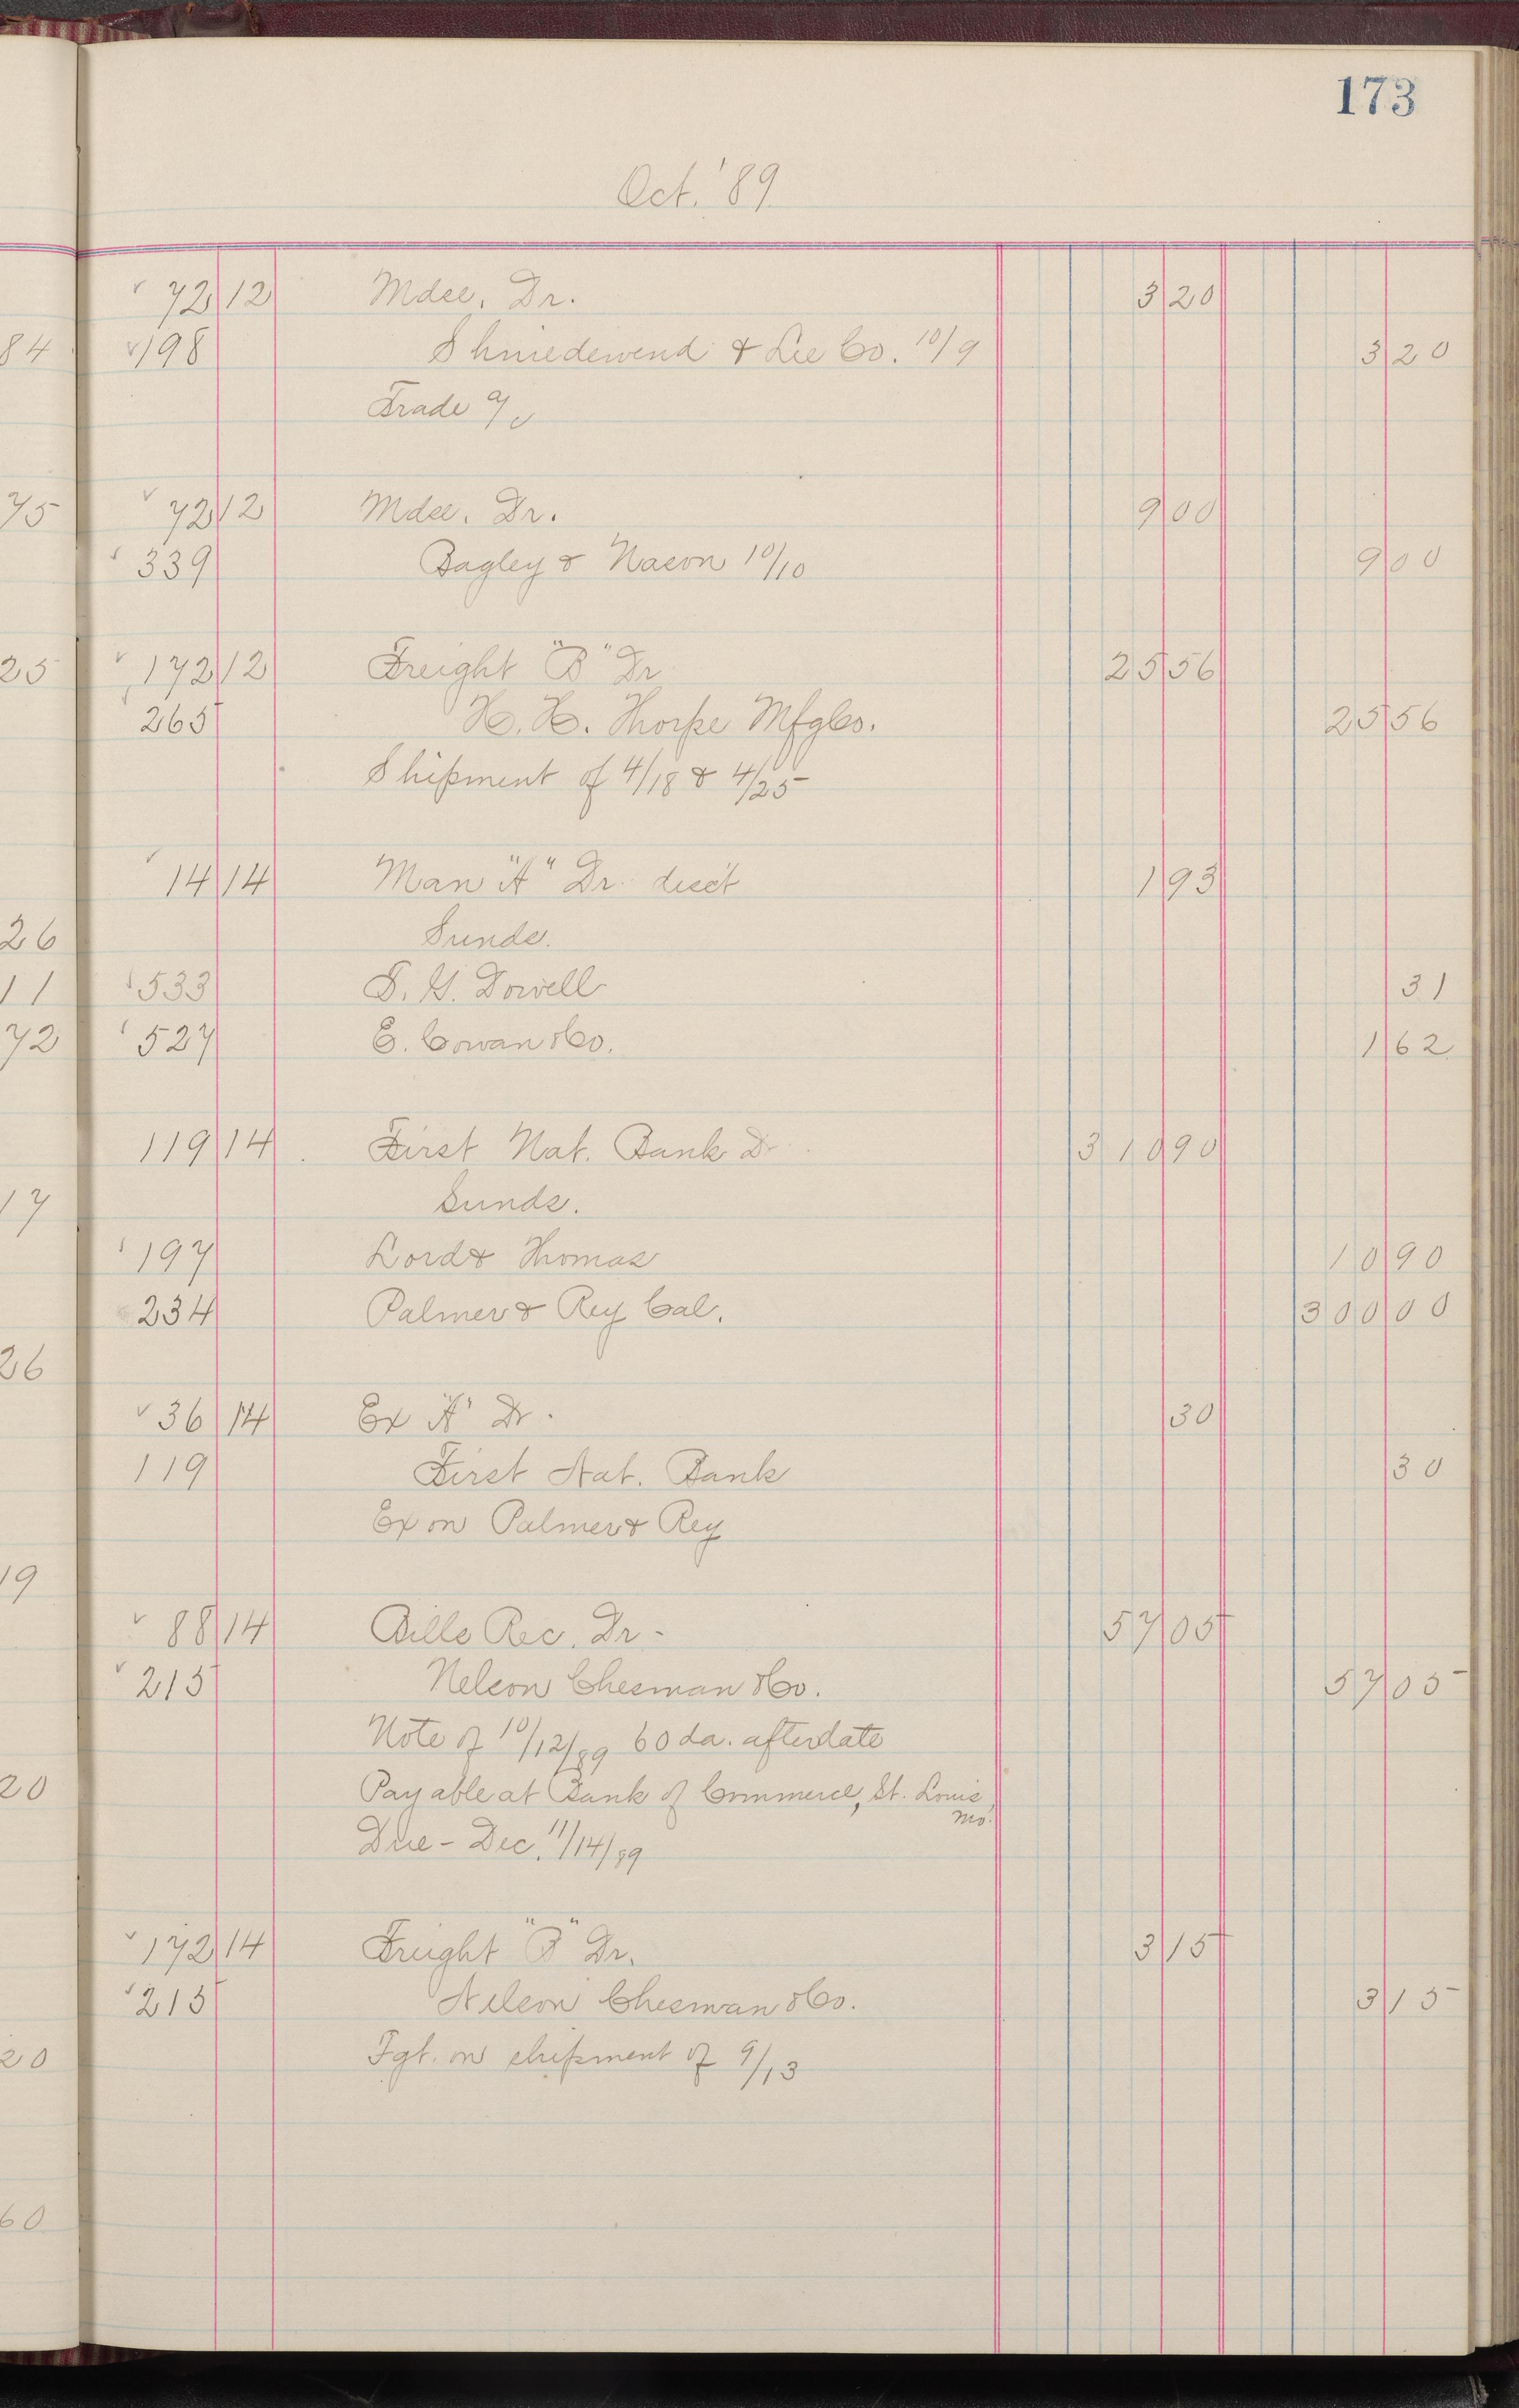 173
Oct. '89
72 12 Mdse. Dr. 3 20
84 198 Shniedewend & Lee Co. 10/9 3 20
Trade a/c
75 72 12 Mdse. Dr. 9 00
339 Bagley & Nason 10/10 9 00
25 172 12 Freight "B" Dr 25 56
265 H. H. Thorpe Mfg Co. 25 56
Shipment of 4/18 & 4/25
14 14 Man "A" Dr. disc't 1 93
26 Sunds.
11 533 T. G. Dowell 31
72 527 E. Cowan & Co. 1 62
119 14 First Nat. Bank Dr 310 90
17 Sunds.
197 Lord & Thomas 10 90
234 Palmer & Rey Cal. 300 00
26
36 14 Ex "A" Dr. 30
119 First Nat. Bank 30
Ex on Palmer & Rey
19
88 14 Bills Rec. Dr - 57 05
213 Nelson Chesman & Co. 57 05
Note of 10/12/89 60 da. after date
20 Payable at Bank of Commerce, St. Louis,
Mo.
Due - Dec. 11/14/89
172 14 Freight "B" Dr. 3 15
213 Nelson Chesman & Co. 3 15
20 Fgt. on shipment of 9/13
60